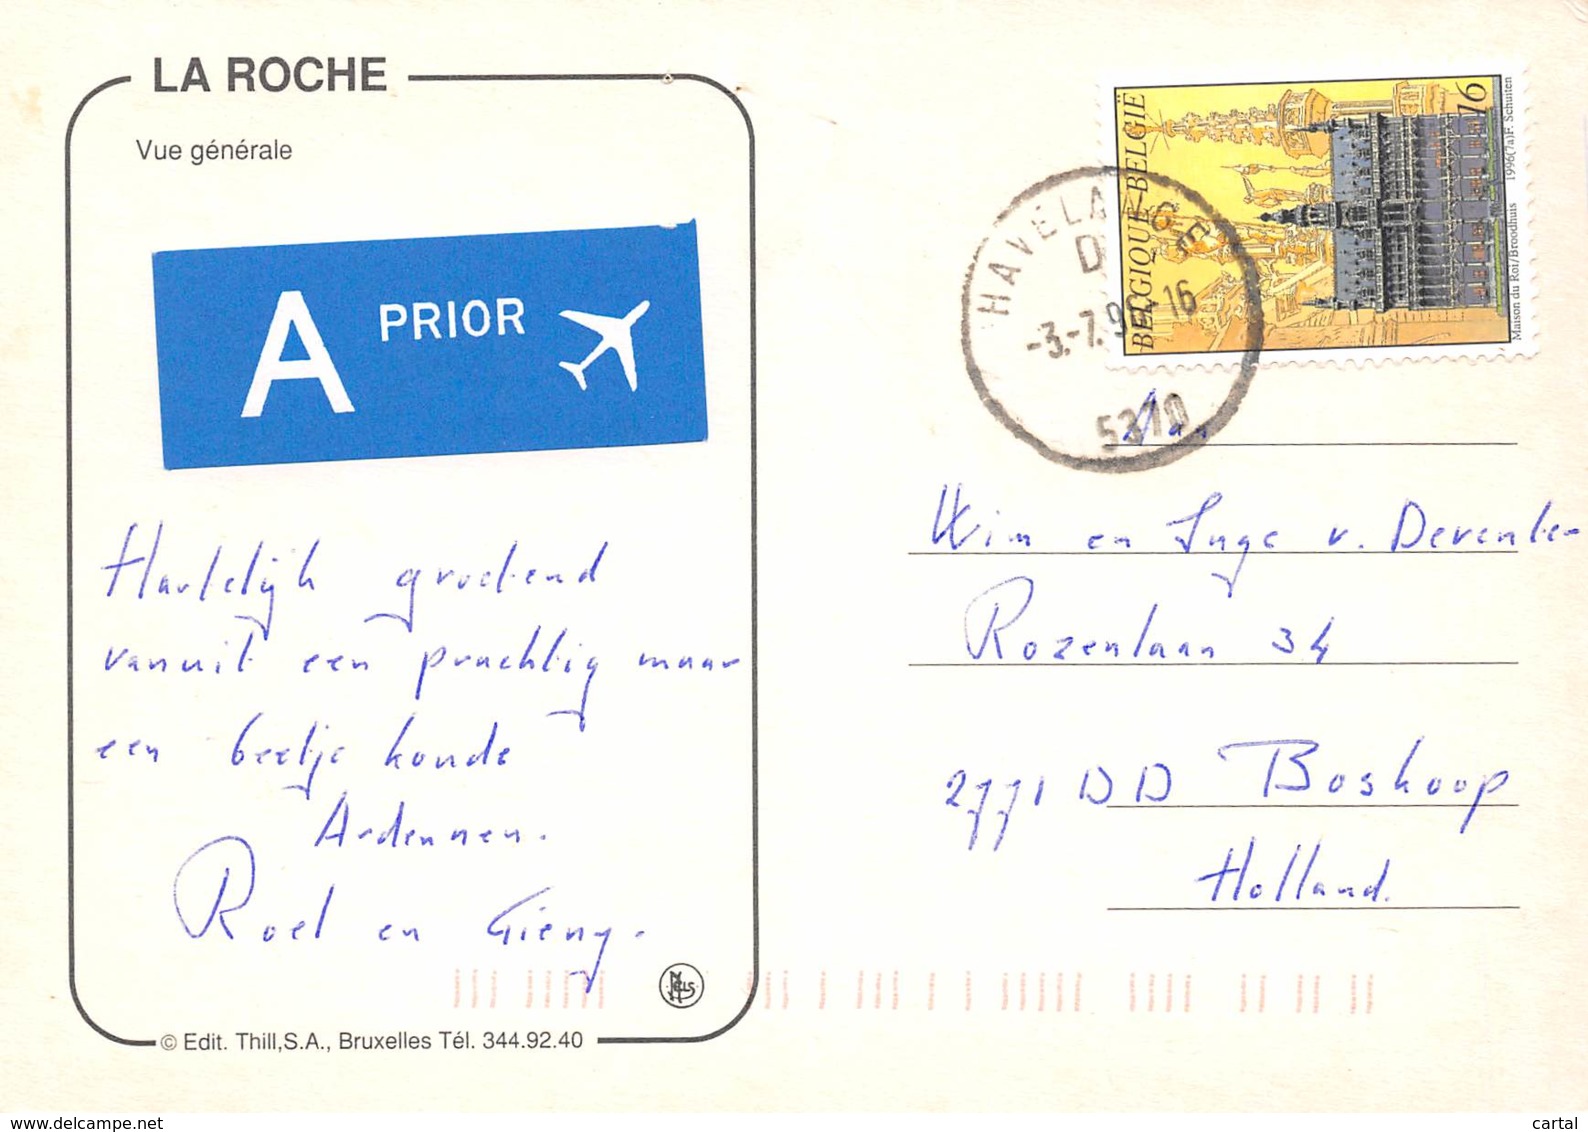 LA ROCHE
Vue générale
A PRIOR
Hartelijk groetend
vanuit een prachtig maar
een beetje koude
Ardennen.
Roel en Gieny.
NELS
© Edit. Thill,S.A., Bruxelles Tél. 344.92.40
BELGIQUE-BELGIË
16
Maison du Roi/Broodhuis 1996(7a)F. Schuiten
HAVELANGE
D
-3.-7.96-16
5370
Aan
Wim en Inge v. Deventer
Rozenlaan 34
2771 DD Boskoop
Holland.
www.delcampe.net
cartal